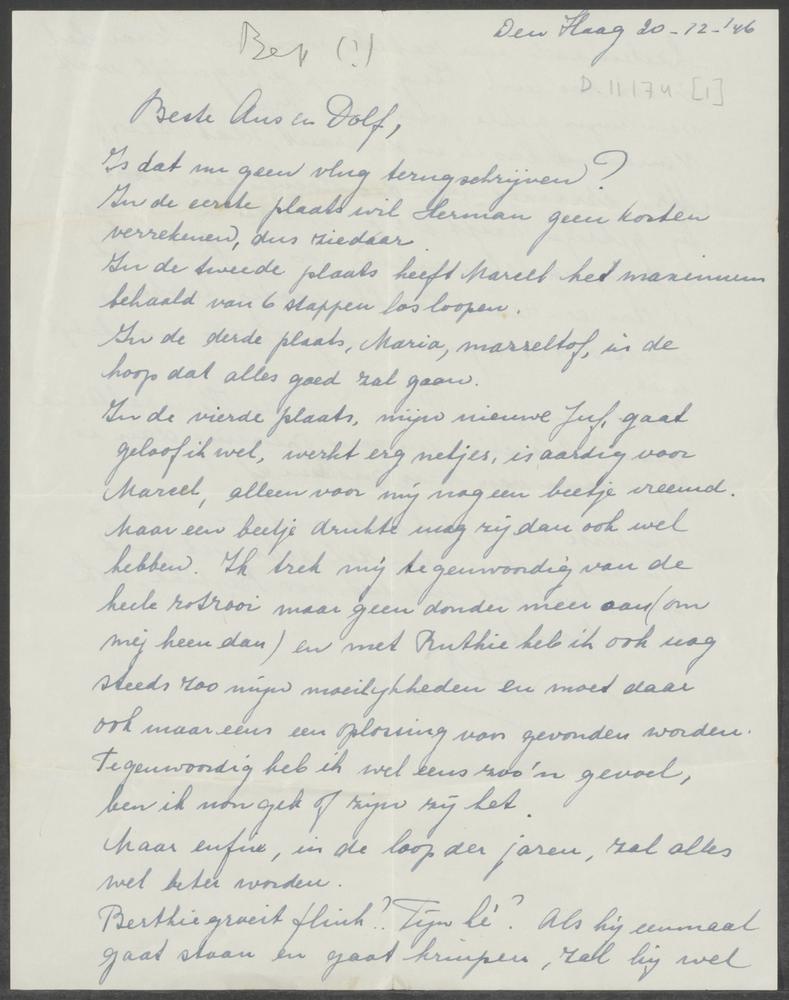 Den Haag 20-12-'46
Bep (?)
D.11174 [1]
Beste Ans en Dolf,
Is dat nu geen vlug terugschrijven?
In de eerste plaats wil Herman geen kosten
verrekenen, dus ziedaar.
In de tweede plaats heeft Marcel het maximum
behaald van 6 stappen los loopen.
In de derde plaats, Maria, mazzeltof, in de
hoop dat alles goed zal gaan.
In de vierde plaats, mijn nieuwe Juf, gaat
geloof ik wel, werkt erg netjes, is aardig voor
Marcel, alleen voor mij nog een beetje vreemd.
Maar een beetje drukte mag zij dan ook wel
hebben. Ik trek mij tegenwoordig van de
heele rotzooi maar geen donder meer aan (om
mij heen dan) en met Ruthie heb ik ook nog
steeds zoo mijn moeilijkheden en moet daar
ook maar eens een oplossing voor gevonden worden.
Tegenwoordig heb ik wel eens zoo'n gevoel,
ben ik nou gek of zijn zij het.
Maar enfin, in de loop der jaren, zal alles
wel beter worden.
Berthie groeit flink? Fijn hé? Als hij eenmaal
gaat staan en gaat kruipen, zal hij wel